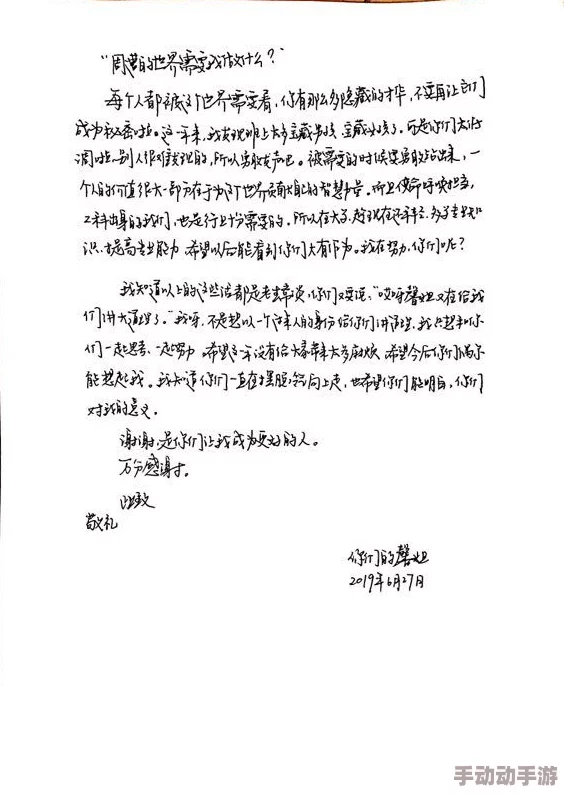 “周遭的世界需要我做什么？”
每个人都被这个世界需要着，你有那么多隐藏的才华，不要再让它们
成为秘密啦。这一年来，我发现班上太多宝藏男孩、宝藏女孩了。可是你们太低
调啦，别人很难发现的，所以勇敢发声吧。被需要的时候要勇敢站出来，一
个人的价值很大一部分在于为这个世界贡献自己的智慧力量。而且使命呼唤担当，
工科出身的我们，也是行业十分需要的。所以在大学，趁现在还年轻，多学专业知
识、提高专业能力，希望以后能看到你们大有作为。我在努力，你们呢？
我知道以上的这些话都是老生常谈，你们又要说：“哎呀馨姐又在给我
们讲大道理了。”我呀，不是想以一个过来人的身份给你们讲道理，我只想和你
们一起思考、一起努力，希望这一年没有给大家带来太多麻烦，希望今后你们偶尔
能想起我。我知道你们一直在摆脱向上走，也希望你们能明白，你们
对我的意义。
谢谢，是你们让我成为更好的人。
万分感谢。
此致
敬礼
你们的馨姐
2019年6月27日
手动动手游